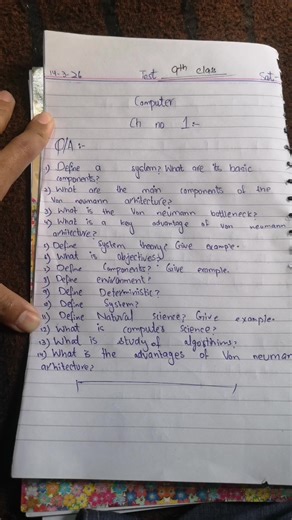 14-3-26 Test 9th class Sat-
Computer
Ch no 1:-
Q/A:-
1) Define a system? What are its basic
components?
2) What are the main components of the
Von neumann arhitecture?
3) What is the Von neumann bottleneck?
4) What is a key advantage of von neumann
arhitecture?
5) Define System theory? Give example.
6) What is objectives?
7) Define Components? Give example.
8) Define environment?
9) Define Deterministic?
10) Define System?
11) Define Natural science? Give example.
12) What is computer science?
13) What is study of algosthims?
14) What is the advantages of Von neuman
arhitecture?